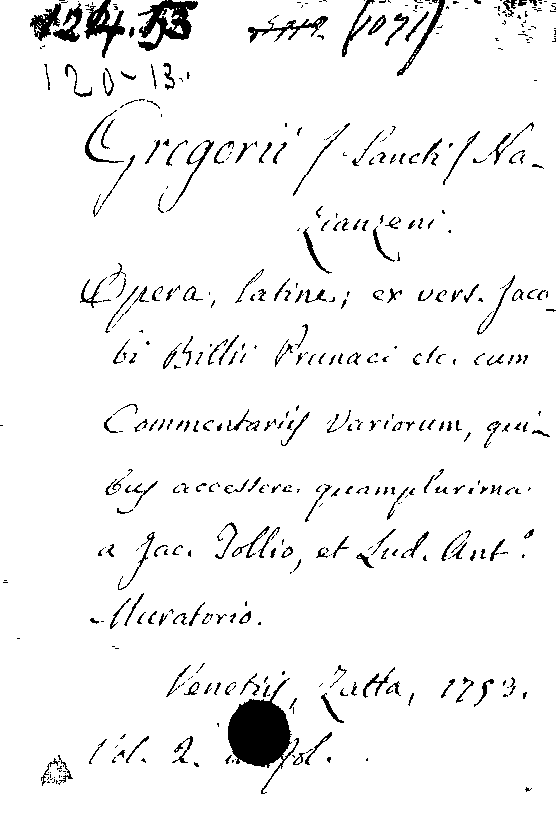 124.13 (1071)
120-13.
Gregorii / Sancti / Na-
zianzeni.
Opera, latine; ex vers. Jaco-
bi Billii Prunaei etc. cum
Commentariis Variorum, qui-
bus accessere quamplurima
a Jac. Tollio, et Lud. Ant.º
Muratorio.
Venetiis, Zatta, 1753.
Vol. 2. in fol.